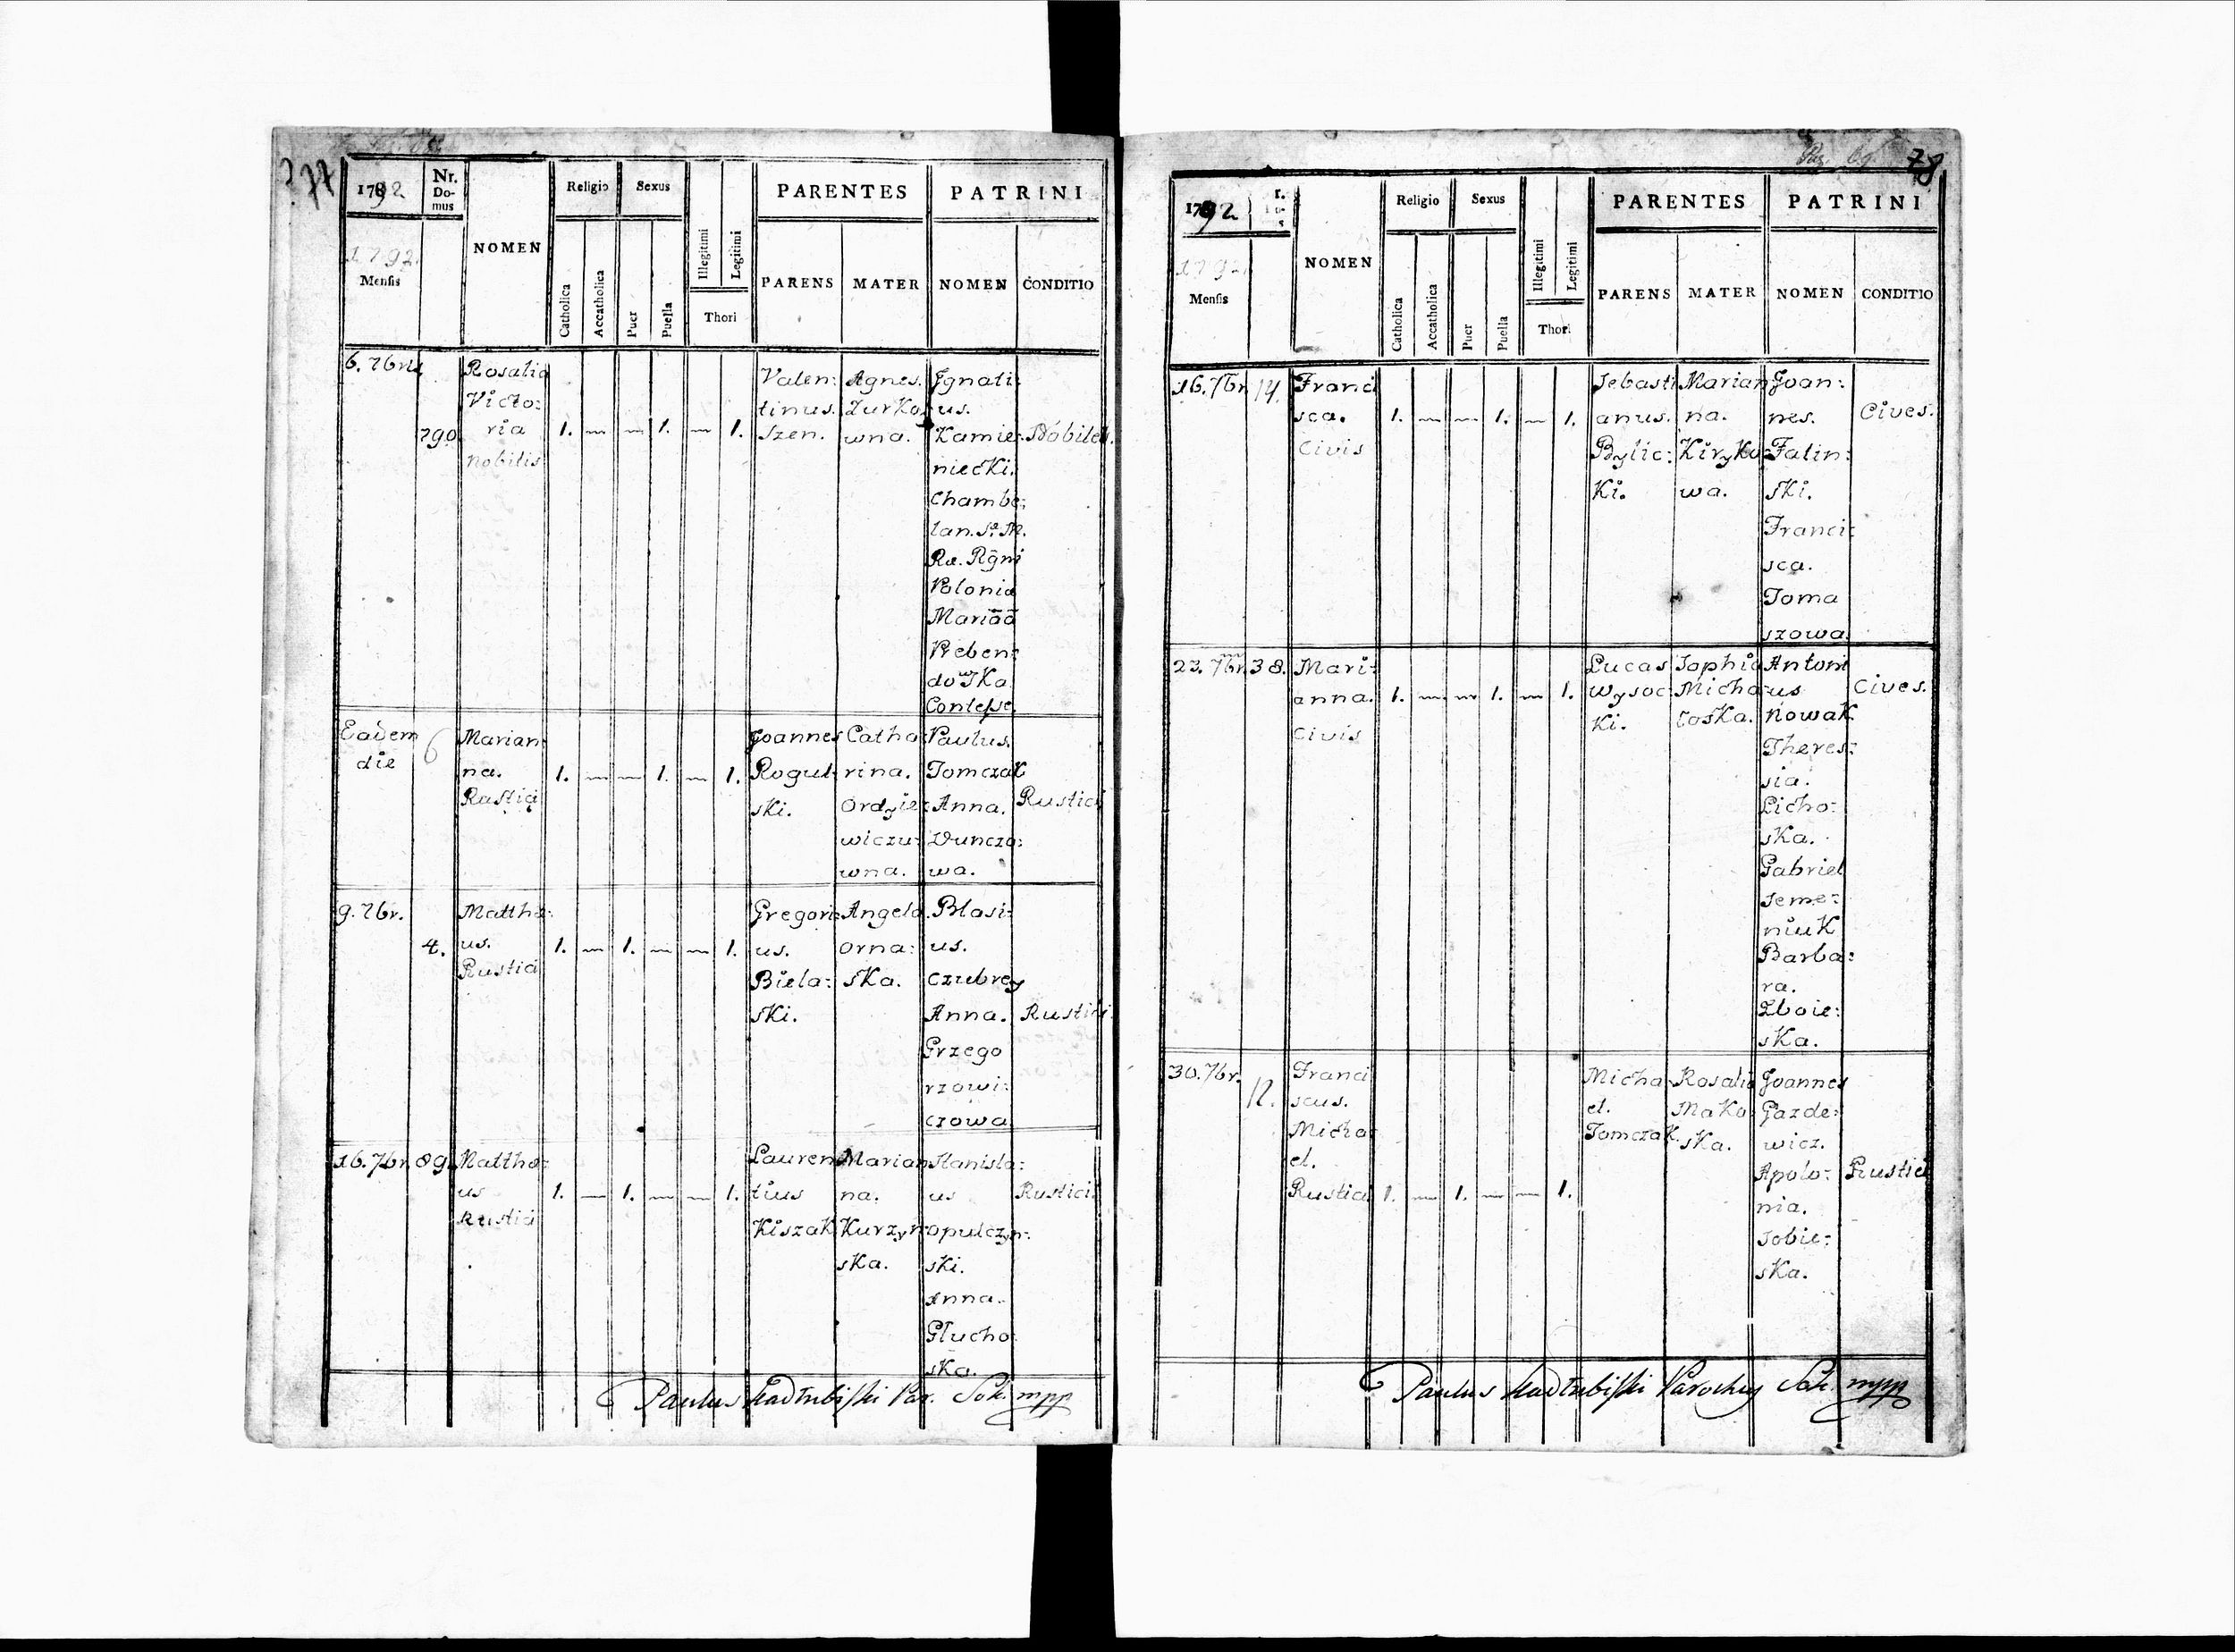 77
1792
Nr.
Do-
mus
NOMEN
Religio
Sexus
PARENTES
PATRINI
1792.
Mensis
Catholica
Accatholica
Puer
Puella
Illegitimi
Legitimi
Thori
PARENS
MATER
NOMEN
CONDITIO
6. 7bris
290
Rosalia
Victo:
ria
nobilis
1. — — 1. — 1.
Valen:
tinus.
Szen.
Agnes.
Zurko
wna.
Ignati
us.
Kamie:
niecki.
Chambe:
lan. S. M.
Rx. Rgni
Polonia
Mariãã
Preben:
dowska
Contesse
Nobiles.
Eadem
die
6
Marian
na.
Rustici
1. — — 1. — 1.
Joannes
Rogul
ski.
Catha
rina.
Ordyie:
wiczu:
wna.
Paulus.
Tomczak
Anna.
Dunczo:
wa.
Rustici
9. 7br.
4.
Matthæ:
us.
Rustici
1. — 1. — — 1.
Gregori
us.
Biela:
ski.
Angela
Orna:
ska.
Blasi:
us.
Czubrey
Anna.
Grzego
rzowi:
czowa
Rustici.
16. 7br.
89.
Matthæ:
us
Rustici
1. — 1. — — 1.
Lauren
tius
Kiszak
Marian
na.
Kurzyn
ska.
Stanisla:
us
Opulczyn:
ski.
Anna.
Głucho
ska.
Rustici.
Paulus Kadłubiski Par. Sok. mpp
78
1792
NOMEN
Religio
Sexus
PARENTES
PATRINI
1792.
Mensis
Catholica
Accatholica
Puer
Puella
Illegitimi
Legitimi
Thori
PARENS
MATER
NOMEN
CONDITIO
16. 7br.
14.
Franci
sca.
Civis
1. — — 1. — 1.
Sebasti
anus.
Bylic:
ki.
Marian
na.
Kiryko:
wa.
Joan:
nes.
Falin:
ski.
Franci:
sca.
Toma
szowa.
Cives.
23. 7br.
38.
Mari:
anna.
Civis
1. — — 1. — 1.
Lucas
Wysoc
ki.
Sophia
Micha
łoska.
Antoni
us
Nowak
Theres:
sia.
Licho:
ska.
Gabriel
Seme:
niuk
Barba:
ra.
Zboie:
ska.
Cives.
30. 7br.
12.
Franci
scus.
Micha
el.
Rustici
1. — 1. — — 1.
Micha
el.
Tomczak
Rosalia
Mako
ska.
Joannes
Gazde:
wicz.
Apolo:
nia.
Sobie:
ska.
Rustici
Paulus Kadłubiski Parochus Sok. mpp